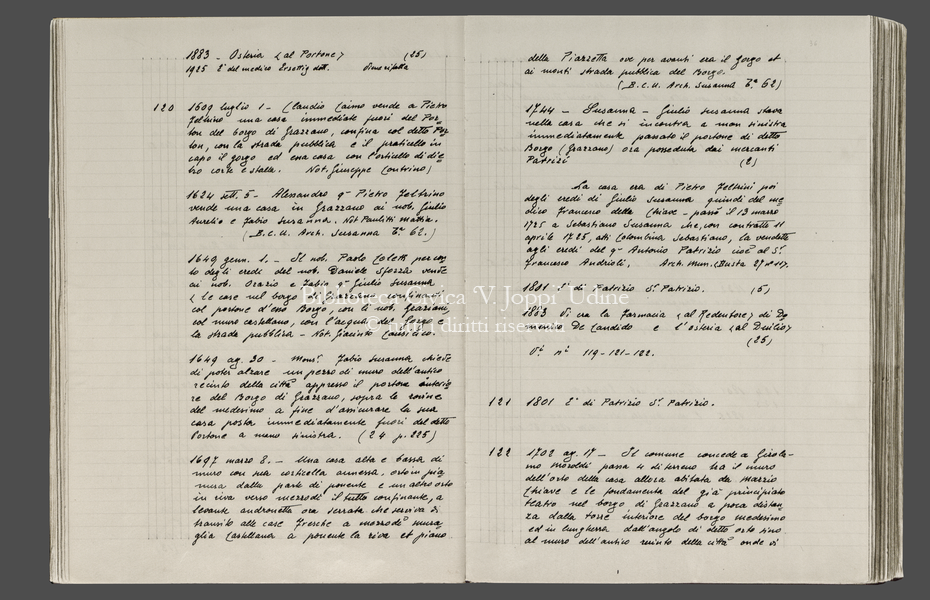 1883 - Osteria (al Portone) (25)
1925 È del medico Ersettig dott. Oimerifatta
120 1609 luglio 1 - Claudio Caimo vende a Pietro
Feltrino una casa immediate fuori del Por=
ton del borgo di Grazzano, confina col detto Por
ton, con la strada pubblica e il praticello in
capo il gorgo ed una casa con l'orticello di die=
tro corte e stalla. Not. Giuseppe Contrino)
1624 sett. 5 - Alessandro q.m Pietro Feltrino
vende una casa in Grazzano ai nob. Giulio
Aurelio e Fabio Susanna. Not Paulitti Mattia.
(B.C.U. Arch. Susanna Ba. 62.)
1649 genn. 1. - Il nob. Paolo Coletti per con
to degli eredi del nob. Daniele Sforza vende
ai nob. Orazio e Fabio q.m Giulio Susanna
(le case nel borgo di Grazzano confinanti
col portone d'esso Borgo, con li nob. Graziani,
col muro castellano, con l'acqua del Gorgo e
la strada pubblica - Not. Giacinto Causilico.
1649 ag. 30 - Mons.r Fabio Susanna chiede
di poter alzare un pezzo di muro dell'antico
recinto della città appresso il portone interio
re del Borgo di Grazzano, sopra le rovine
del medesimo a fine d'assicurare la sua
casa posta immediatamente fuori del detto
Portone a mano sinistra. (24 p. 225)
1697 marzo 8. - Una casa alta e bassa di
muro con sua corticella annessa, orto in pia
nura dalla parte di ponente e un altro orto
in riva verso mezzodì il tutto confinante, a
levante andronetta ora serrata che serviva di
transito alle case Fresche a mezzodì mura,
glia Castellana a ponente la riva et piano
della Piazzetta ove per avanti era il gorgo et
ai monti strada pubblica del Borgo.
(B.C.U. Arch. Susanna Ba. 62)
1744 - Susanna - Giulio Susanna stava
nella casa che si incontra a man sinistra
immediatamente passato il portone di detto
Borgo (Grazzano) ora posseduta dai mercanti
Patrizi (2)
La casa era di Pietro Feltrini poi
degli eredi di Giulio Susanna quindi del me
dico Franceno della Chiave - passò il 13 marzo
1725 a Sebastiano Susanna che, con contratto 11
aprile 1725, atti Colombina Sebastiano, la vendette
agli eredi del q.m Antonio Patrizio cioè al Sr.
Francesco Andrioli, Arch. Mun. (Busta 27 n° 117.
1801 È di Patrizio Sr. Patrizio. (5)
1853 Vi era la Farmacia (al Redentore) di Do
menico De Candido e l'osteria (al Duilio)
(25)
Vi. ni. 119-121-122.
121 1801 È di Patrizio Sr. Patrizio.
122 1702 ag. 17 - Il comune concede a Girola-
mo Moroldi passa 4 di terreno tra il muro
dell'orto della casa allora abitata da Marzio
Chiave e le fondamenta del già principiato
teatro nel borgo di Grazzano a poca distan
za dalla torre interiore del borgo medesimo
ed in lunghezza dall'angolo di detto orto sino
al muro dell'antico recinto della città onde vi
Biblioteca Civica 'V. Joppi' Udine
© tutti i diritti riservati